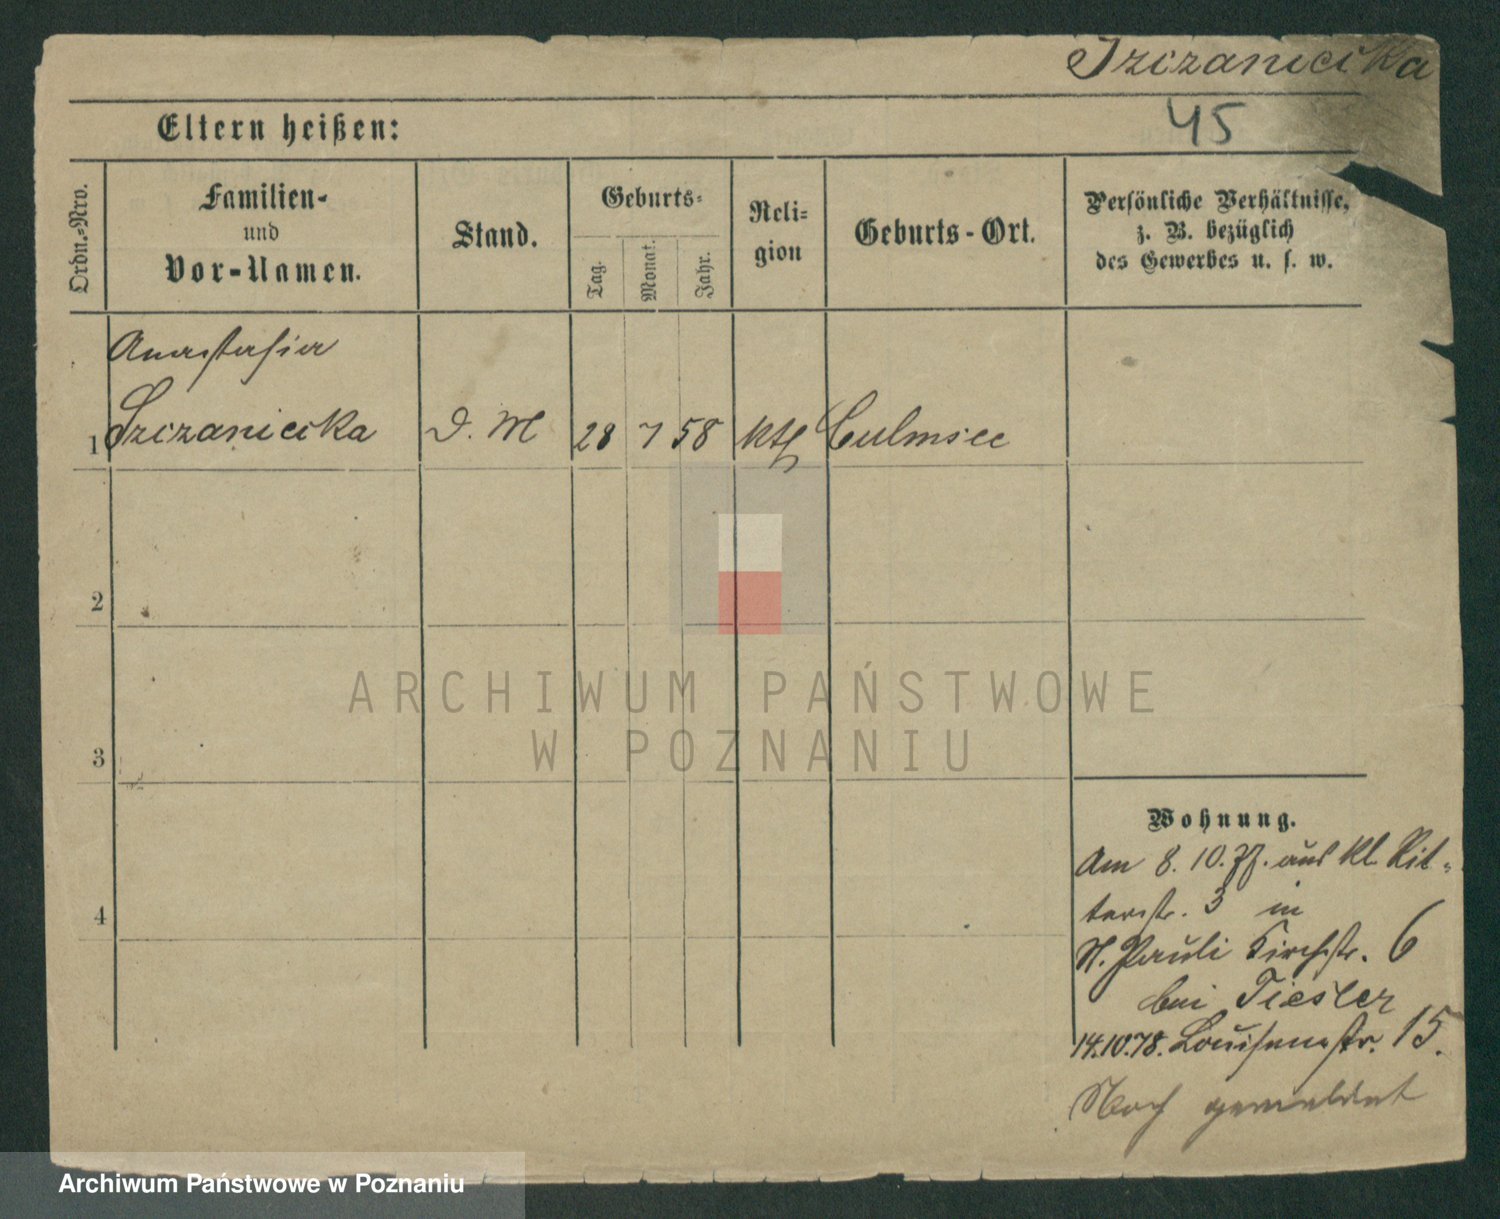 Szczaniecka
45
Eltern heißen:
Ordn.-Nro.
Familien-
und
Vor-Namen.
Stand.
Geburts-
Tag.
Monat.
Jahr.
Reli=
gion
Geburts-Ort.
Persönliche Verhältnisse,
z. B. bezüglich
des Gewerbes u. s. w.
Anastasia
1 Szczaniecka D. M 28 7 58 kth Culmsee
2
3
4
Wohnung.
Am 8. 10. 77. aus kl. Rit=
terstr. 3 in
St. Pauli Kirchstr. 6
bei Tiesler
14.10.78. Louisenstr. 15.
Noch gemeldet
ARCHIWUM PAŃSTWOWE
W POZNANIU
Archiwum Państwowe w Poznaniu